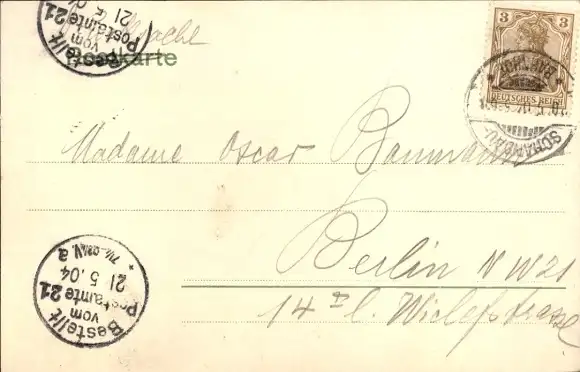 Bestellt
vom
Postamte 21
21 5. 0
Postkarte
3
3
DEUTSCHES REICH
SCHANDAU
Madame Oscar Baumann
Berlin N W 21
14 I l. Wiclefstrasse
Bestellt
vom
Postamte 21
21 5. 04
* 7½-9¼V. a